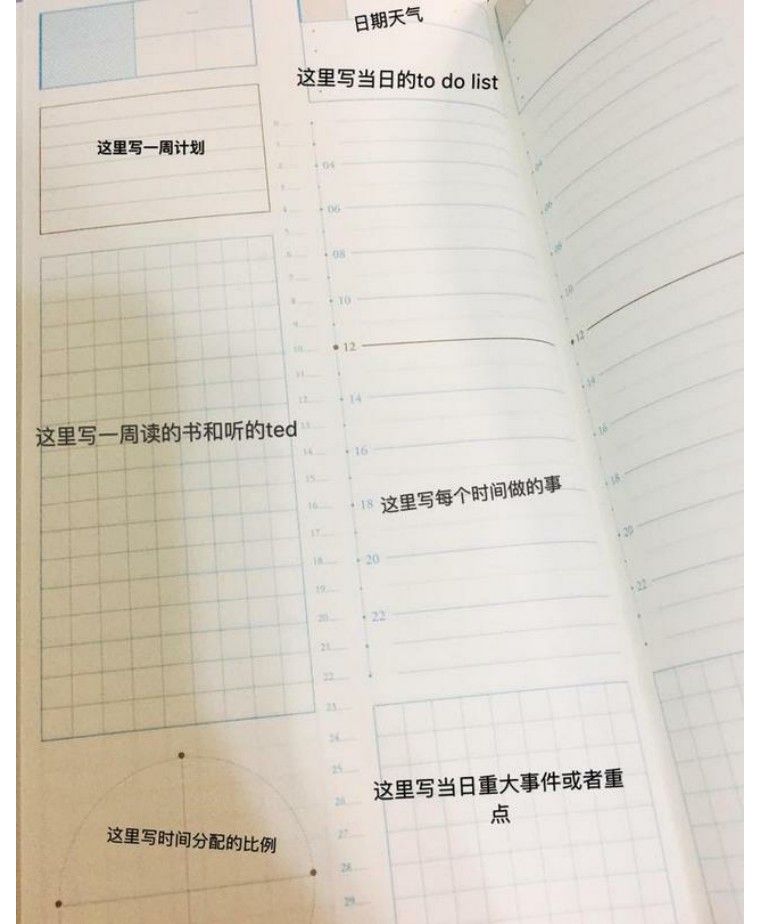 日期天气
这里写当日的to do list
这里写一周计划
这里写一周读的书和听的ted
这里写每个时间做的事
这里写当日重大事件或者重
点
这里写时间分配的比例
04
06
08
10
12
14
16
18
20
22
04
06
08
10
12
14
16
18
20
22
0
1
2
3
4
5
6
7
8
9
10
11
12
13
14
15
16
17
18
19
20
21
22
23
24
25
26
27
28
29